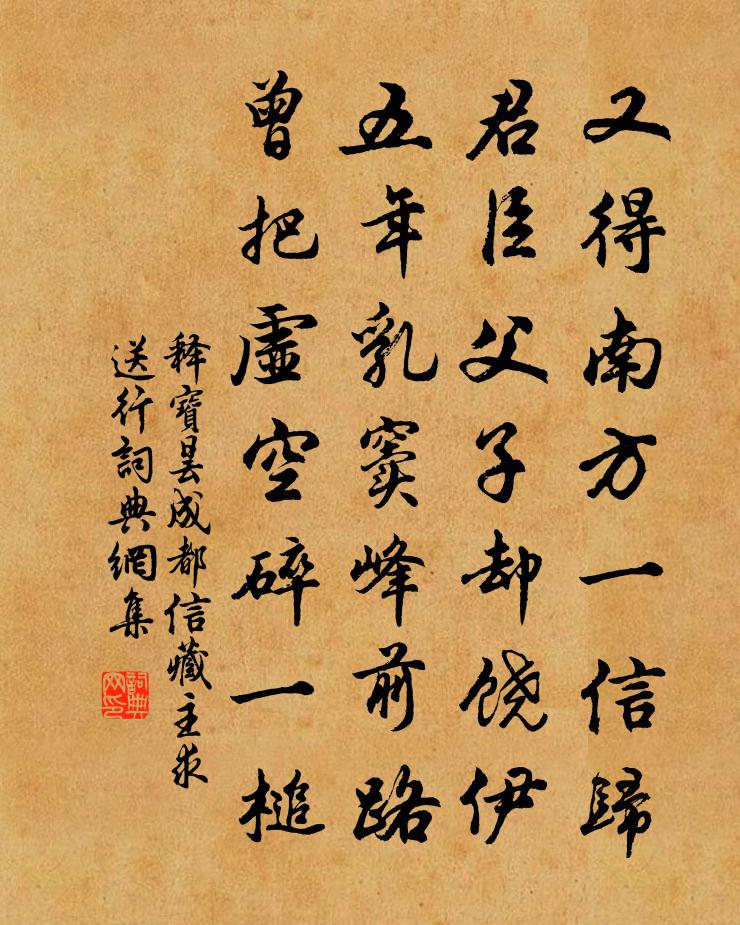 又得南方一信歸
君臣父子却饶伊
五年乳竇峰前路
曾把虛空碎一槌
释寶曇成都信藏主求
送行詞典網集
詞典
网印